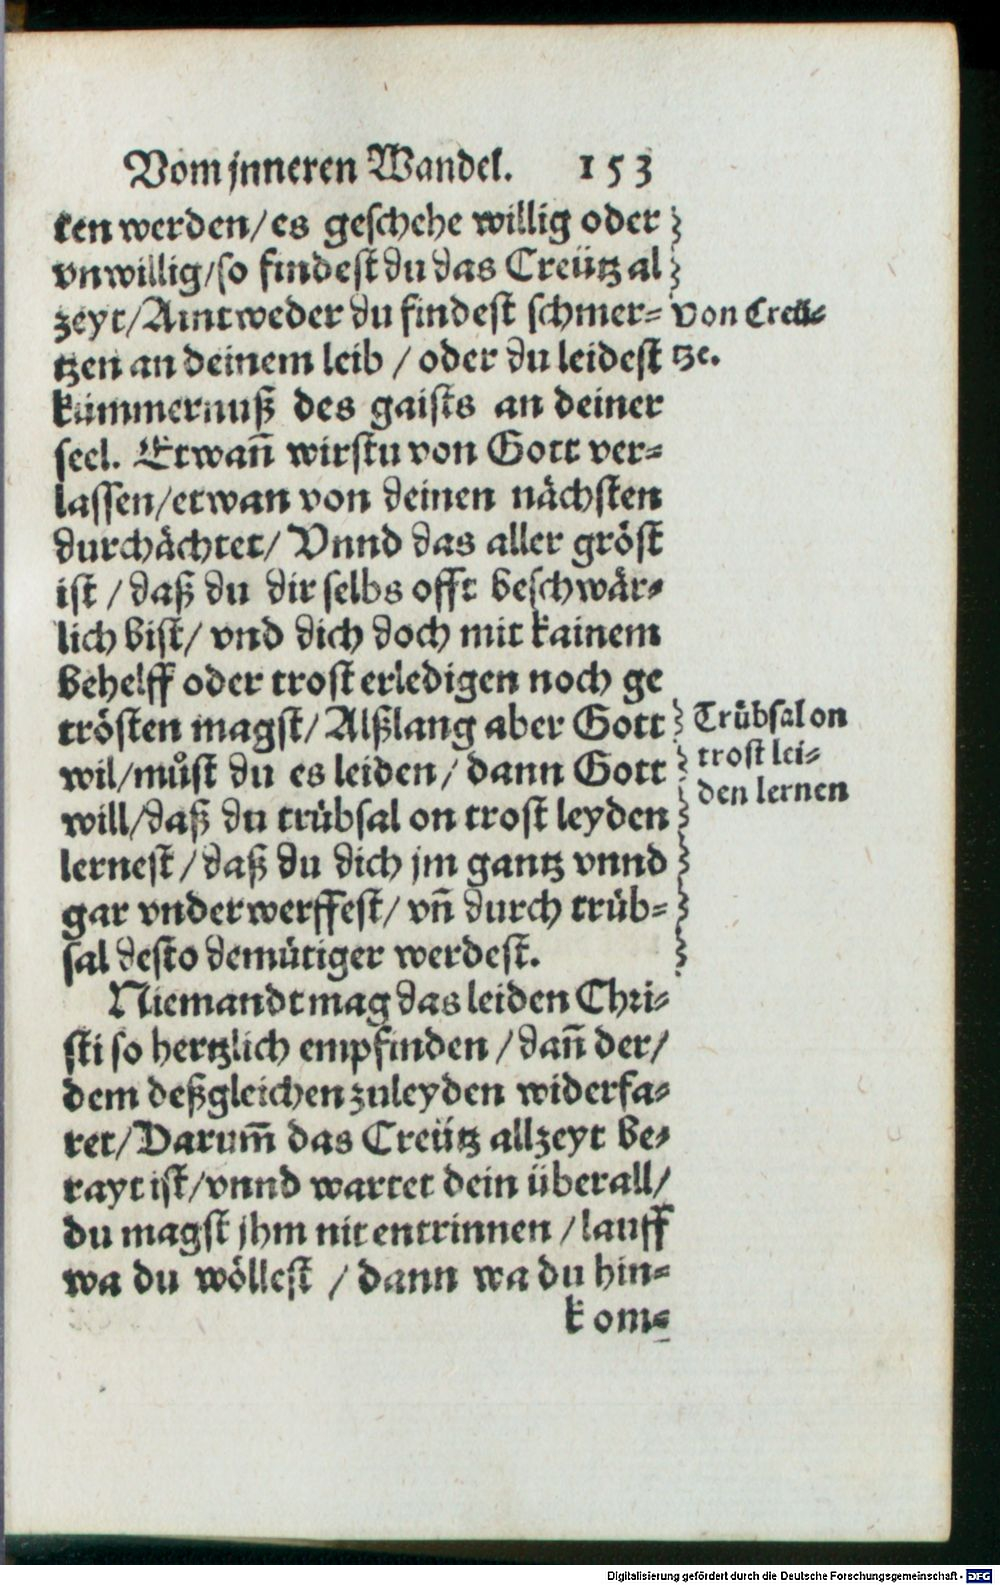 Vom jnneren Wandel. 153
ken werden/es geschehe willig oder
vnwillig/so findest du das Creütz al
zeyt/Aintweder du findest schmer-
tzen an deinem leib / oder du leidest
kümmernuß des gaists an deiner
seel. Etwañ wirstu von Gott ver-
lassen/etwan von deinen nächsten
durchächtet/ Vnnd das aller gröst
ist / daß du dir selbs offt beschwär-
lich bist/ vnd dich doch mit kainem
behelff oder trost erledigen noch ge
trösten magst/ Alßlang aber Gott
wil/můst du es leiden/ dann Gott
will/daß du trübsal on trost leyden
lernest / daß du dich jm gantz vnnd
gar vnderwerffest/ vñ durch trüb-
sal desto demütiger werdest.
Niemandt mag das leiden Chri-
sti so hertzlich empfinden / dañ der/
dem deßgleichen zuleyden widerfa-
ret/Darum̃ das Creütz allzeyt be-
rayt ist/vnnd wartet dein überall/
du magst jhm nit entrinnen / lauff
wa du wöllest / dann wa du hin-
kom-
Von Creü-
tze.
Trübsal on
trost lei-
den lernen
Digitalisierung gefördert durch die Deutsche Forschungsgemeinschaft - DFG